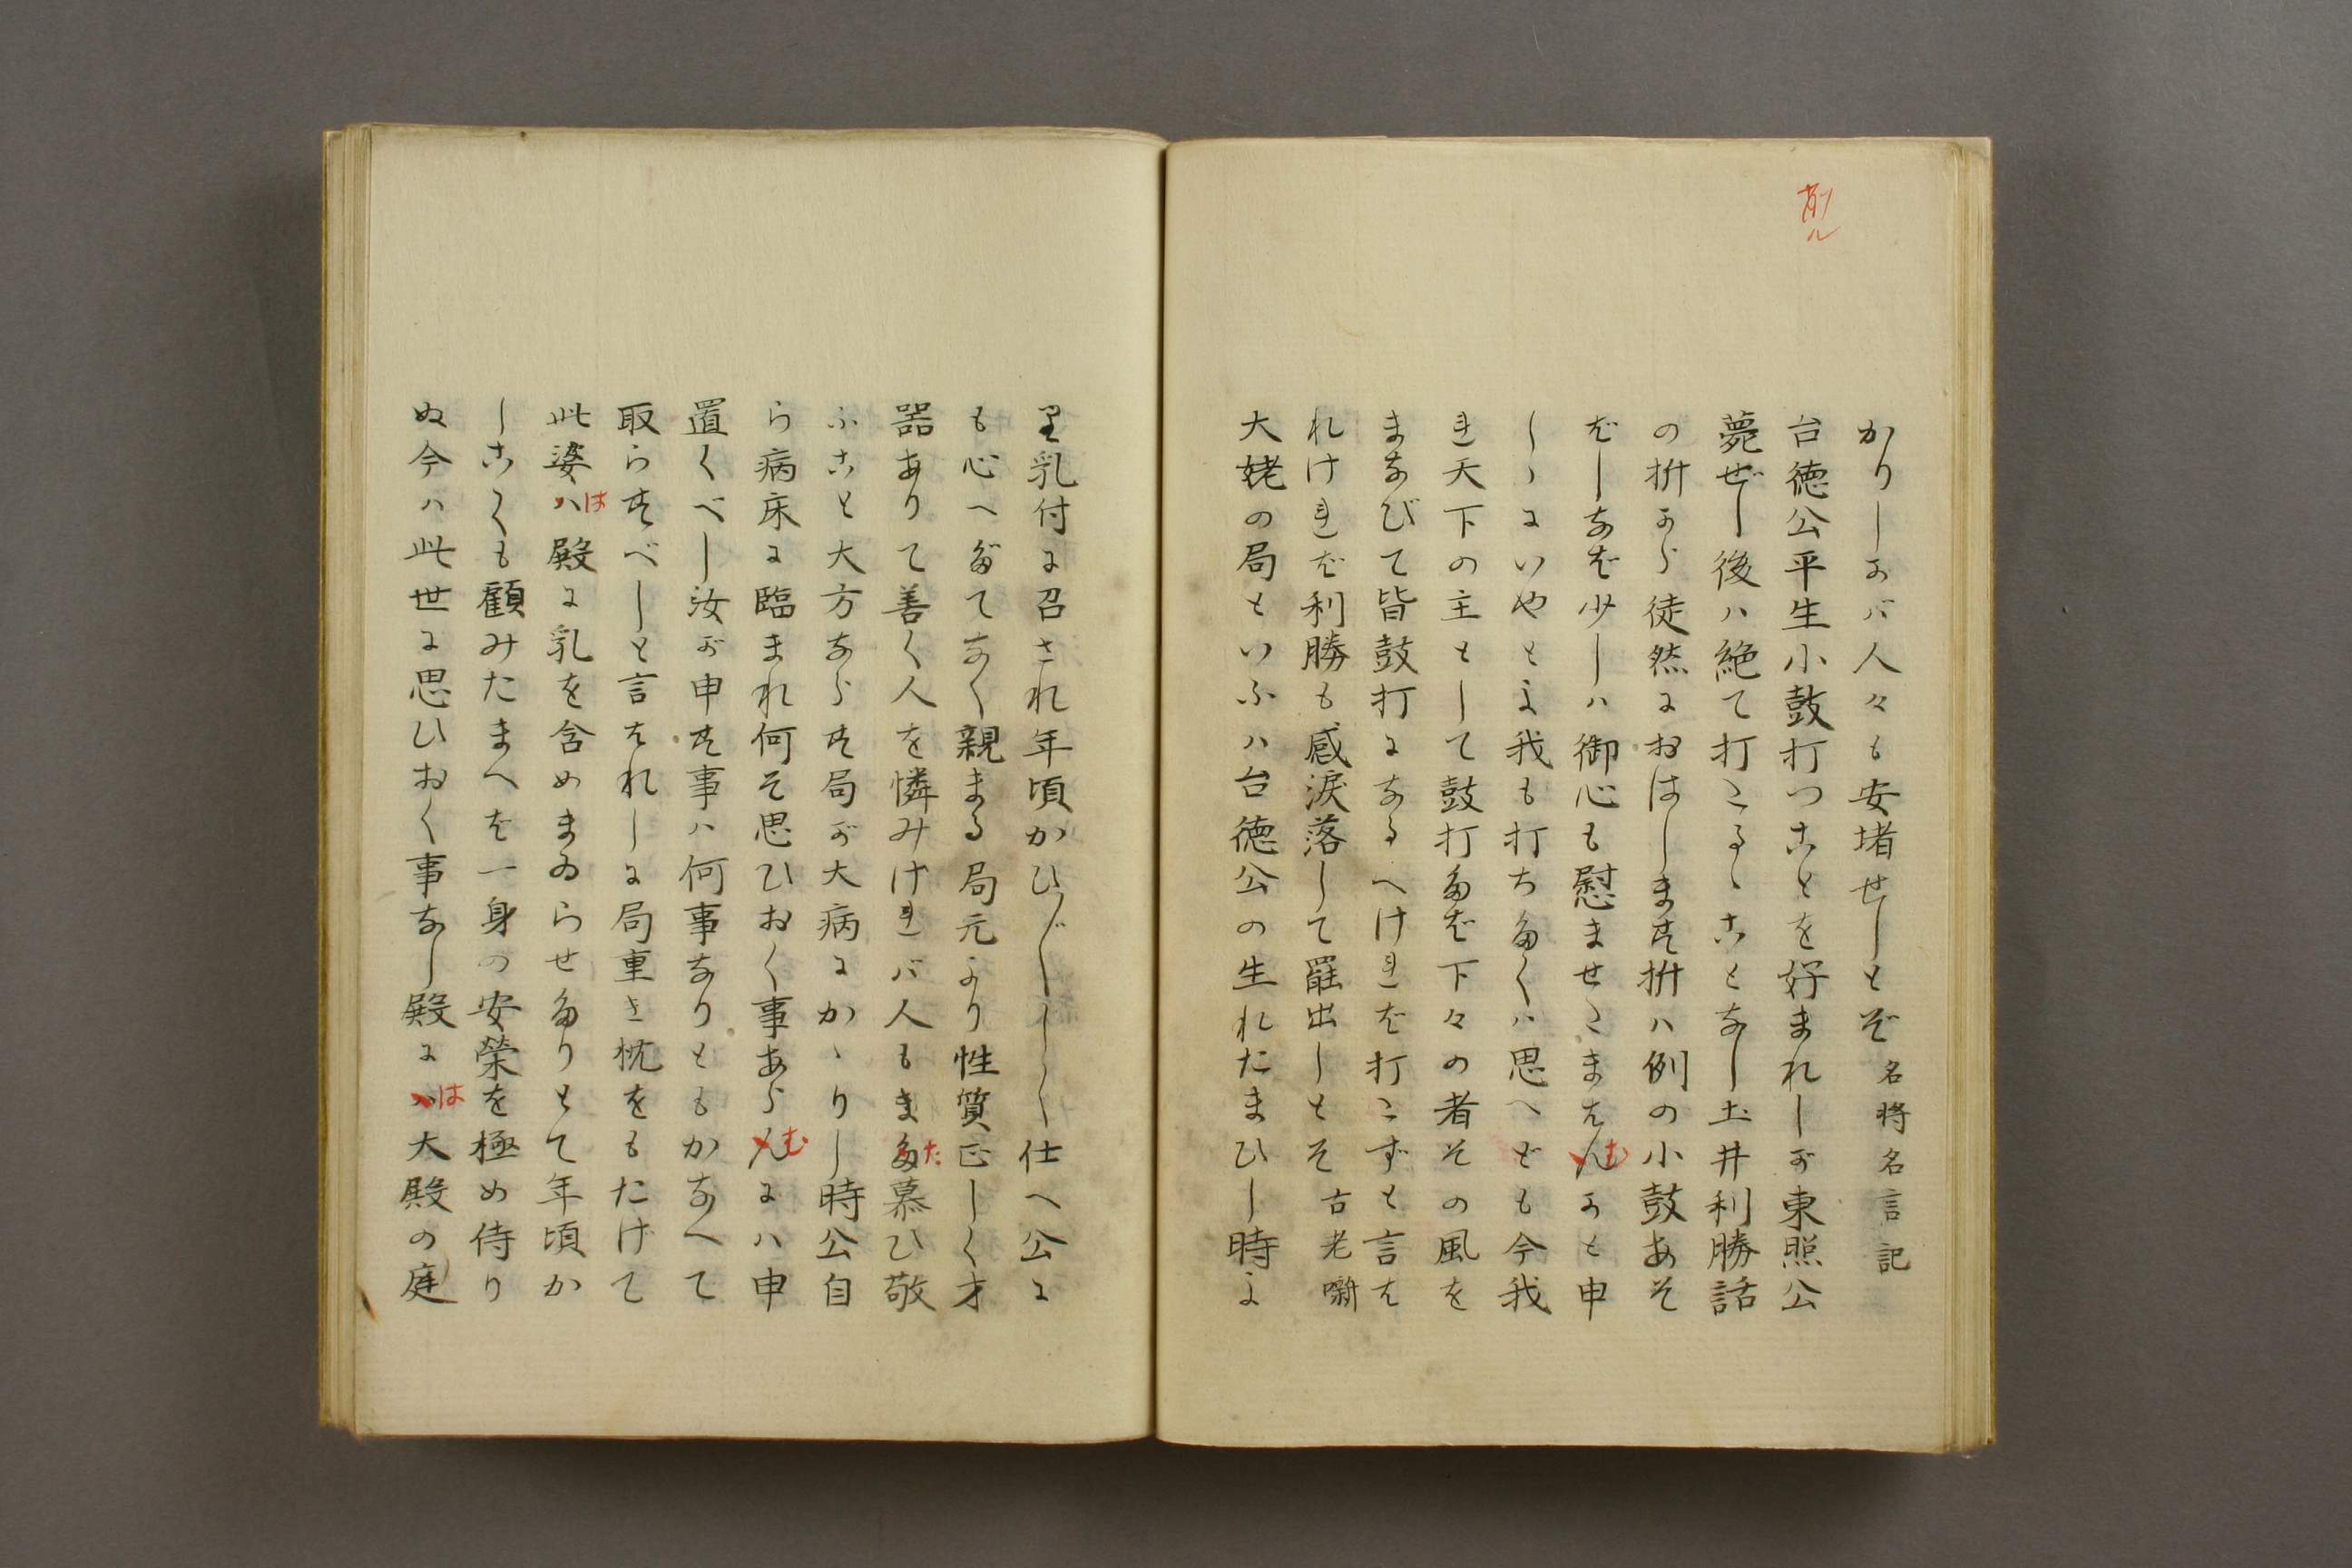 削ル
かりしかバ人々も安堵せしとぞ 名将名言記
台徳公平生小鼓打つことを好まれしが東照公
薨ぜし後ハ絶て打こるゝことなし土井利勝話
の折から徒然におはします折ハ例の小鼓あそ
ばしなば少しハ御心も慰ませこまはんむかと申
しゝにいやとよ我も打ちたくハ思へども今我
れ天下の主として鼓打たば下々の者その風を
まなびて皆鼓打になるへければ打こずと言は
れければ利勝も感涙落して罷出しとそ 古老噺
大姥の局といふハ台徳公の生れたまひし時よ
り乳付に召され年頃かひ〴〵しく仕へ公に
も心へだてなく親まる局元より性質正しく才
器ありて善く人を憐みければ人もまたた慕ひ敬
ふこと大方ならす局が大病にかゝりし時公自
ら病床に臨まれ何そ思ひおく事あらんむにハ申
置くべし汝が申す事ハ何事なりともかなへて
取らすべしと言はれしに局重き枕をもたげて
此婆ハは殿に乳を含めまゐらせたりとて年頃か
しこくも顧みたまへを一身の安榮を極め侍り
ぬ今ハ此世に思ひおく事なし殿にハは大殿の庭